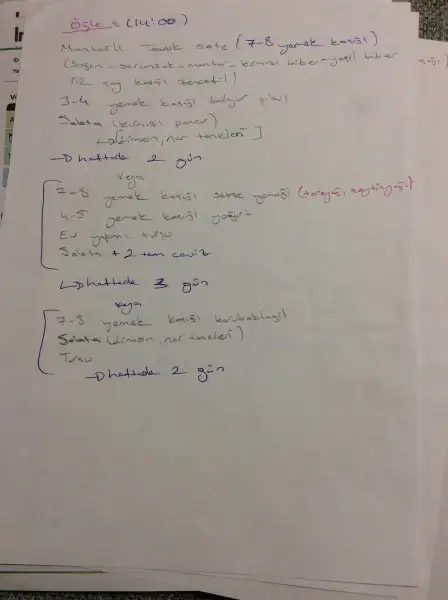 Öğle : (14:00)
Mantarlı Tavuk Sote (7-8 yemek kaşığı)
(Soğan - sarımsak - mantar - kırmızı biber - yeşil biber
1/2 çay kaşığı tereyağ)
3-4 yemek kaşığı bulgur pilavı
Salata (kırmızı pancar)
[limon, nar taneleri]
→ haftada 2 gün
veya
7-8 yemek kaşığı sebze yemeği (tereyağı, zeytinyağı)
4-5 yemek kaşığı yoğurt
Ev yapımı turşu
Salata + 2 tam ceviz
→ haftada 3 gün
veya
7-8 yemek kaşığı kurubaklagil
Salata (limon, nar taneleri)
Turşu
→ haftada 2 gün